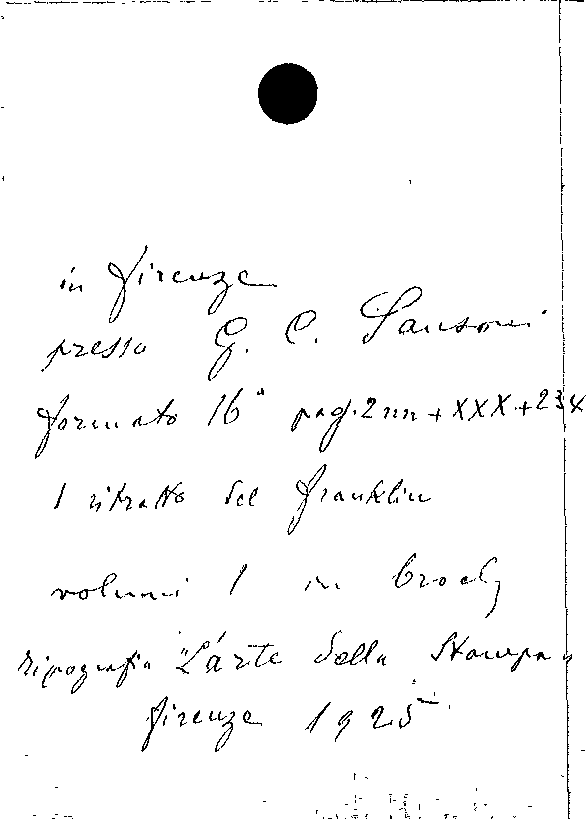 in Firenze
presso G. C. Sansoni
formato 16° pag. 2nn + XXX + 234
1 ritratto del Franklin
volumi 1 in
tipografia "L'arte della Stampa"
Firenze 1925